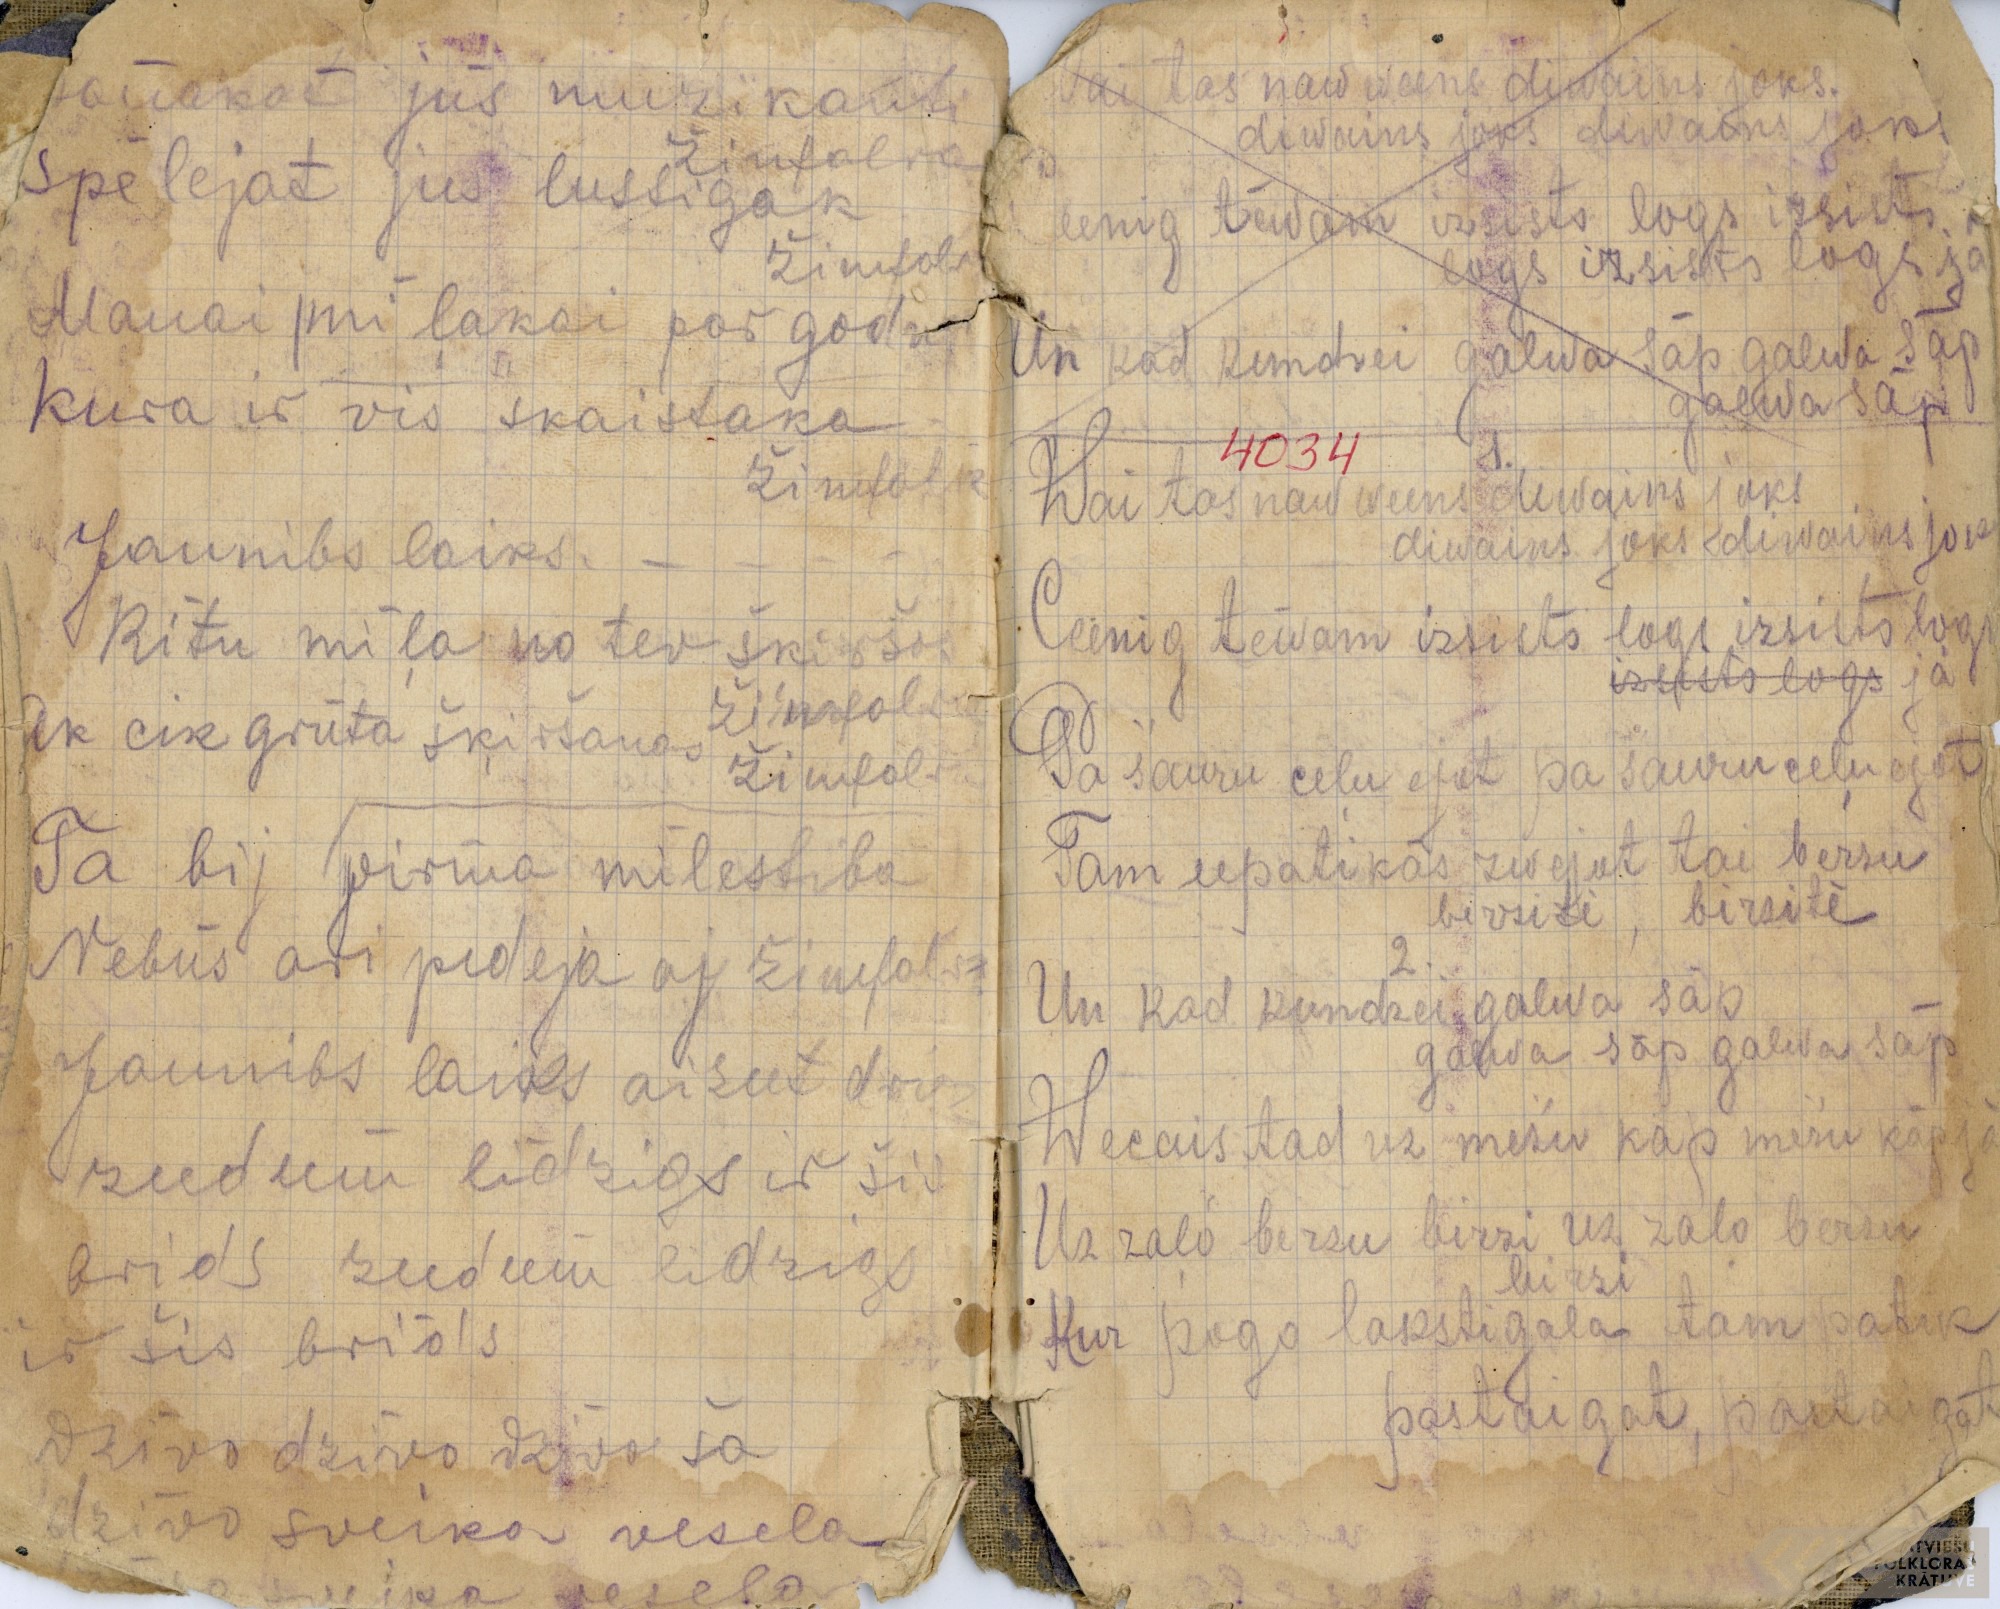 jūs muzikanti
Žimfalra
Spēlējat jūs lussigak
Žimfal
Manai mīļakai par godu
Kura ir vis skaistaka
Žimfal
Jaunibs laiks. – – – –
Rītu mīļa no tev šķiršos
Žimfal
Ak cik grūta šķiršanas
Žimfal
Ta bij pirma milestiba
Nebūs ari pedeja aj žimfal
Jaunibs laiks aizeet
zeedeem līdzigs ir šis
brids zeedeem lidzigs
ir šis brids
Dzīvo dzīvo dzīvo ša
dzīvo sveika vesela
vesela
Vai tas naw weens diwains joks.
diwains joks diwains joks
eenig tēwam izsists logs izsists
logs izsists logs jā
Un kad kundzei galwa sāp galwa sāp
galwa sāp
4034
1.
Wai tas naw weens diwains joks
diwains joks diwains jok
Ceenig tēwam izsists logs izsists logs
izsists logs jā
Pa šauru ceļu ejot pa šauru ceļu ejot
Tam eepatikās zwejot tai bērzu
birzitē, birzitē
2.
Un kad kundzei galwa sāp
galwa sāp galwa sāp
Wecais tad uz mežu kāp mežu kāp jā
Uz zaļo berzu birzi uz zalo berzu
birzi
Kur pogo lakstigala tam patik
pastaigat, pastaigat
LATVIEŠU
FOLKLORAS
KRĀTUVE